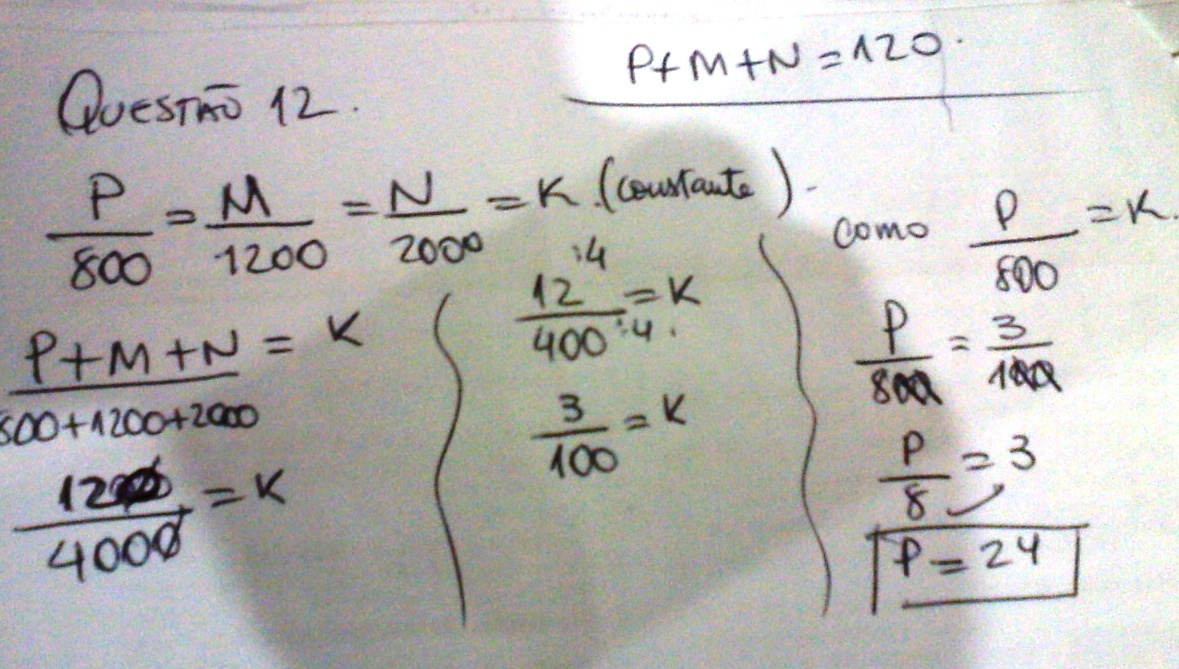 P+M+N=120.
QUESTÃO 12.
P/800 = M/1200 = N/2000 = K.(constante).
P+M+N/800+1200+2000 = K
120/4000 = K
12:4/400:4. = K
3/100 = K
como P/800 = K.
P/800 = 3/100
P/8 = 3
P = 24